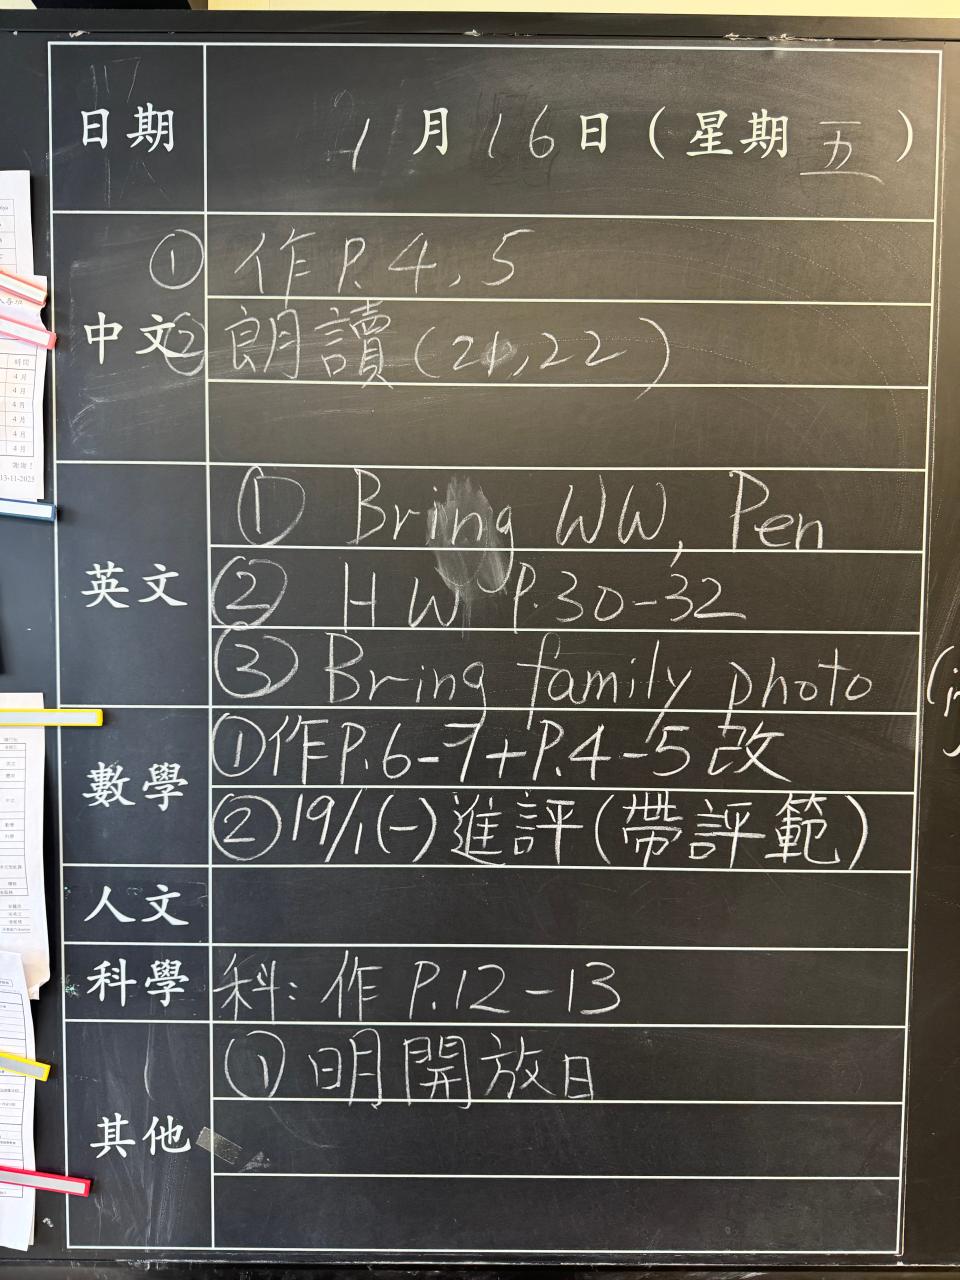 日期 1月16日（星期五）
中文
① 作P.4,5
② 朗讀(21,22)
英文
① Bring WW, Pen
② HW P.30-32
③ Bring family photo
數學
①作P.6-7+P.4-5改
②19/1(一)進評(帶評範)
人文
科學
科: 作 P.12-13
其他
① 明開放日
時間
4月
4月
4月
4月
4月
4月
謝謝！
13-11-2025